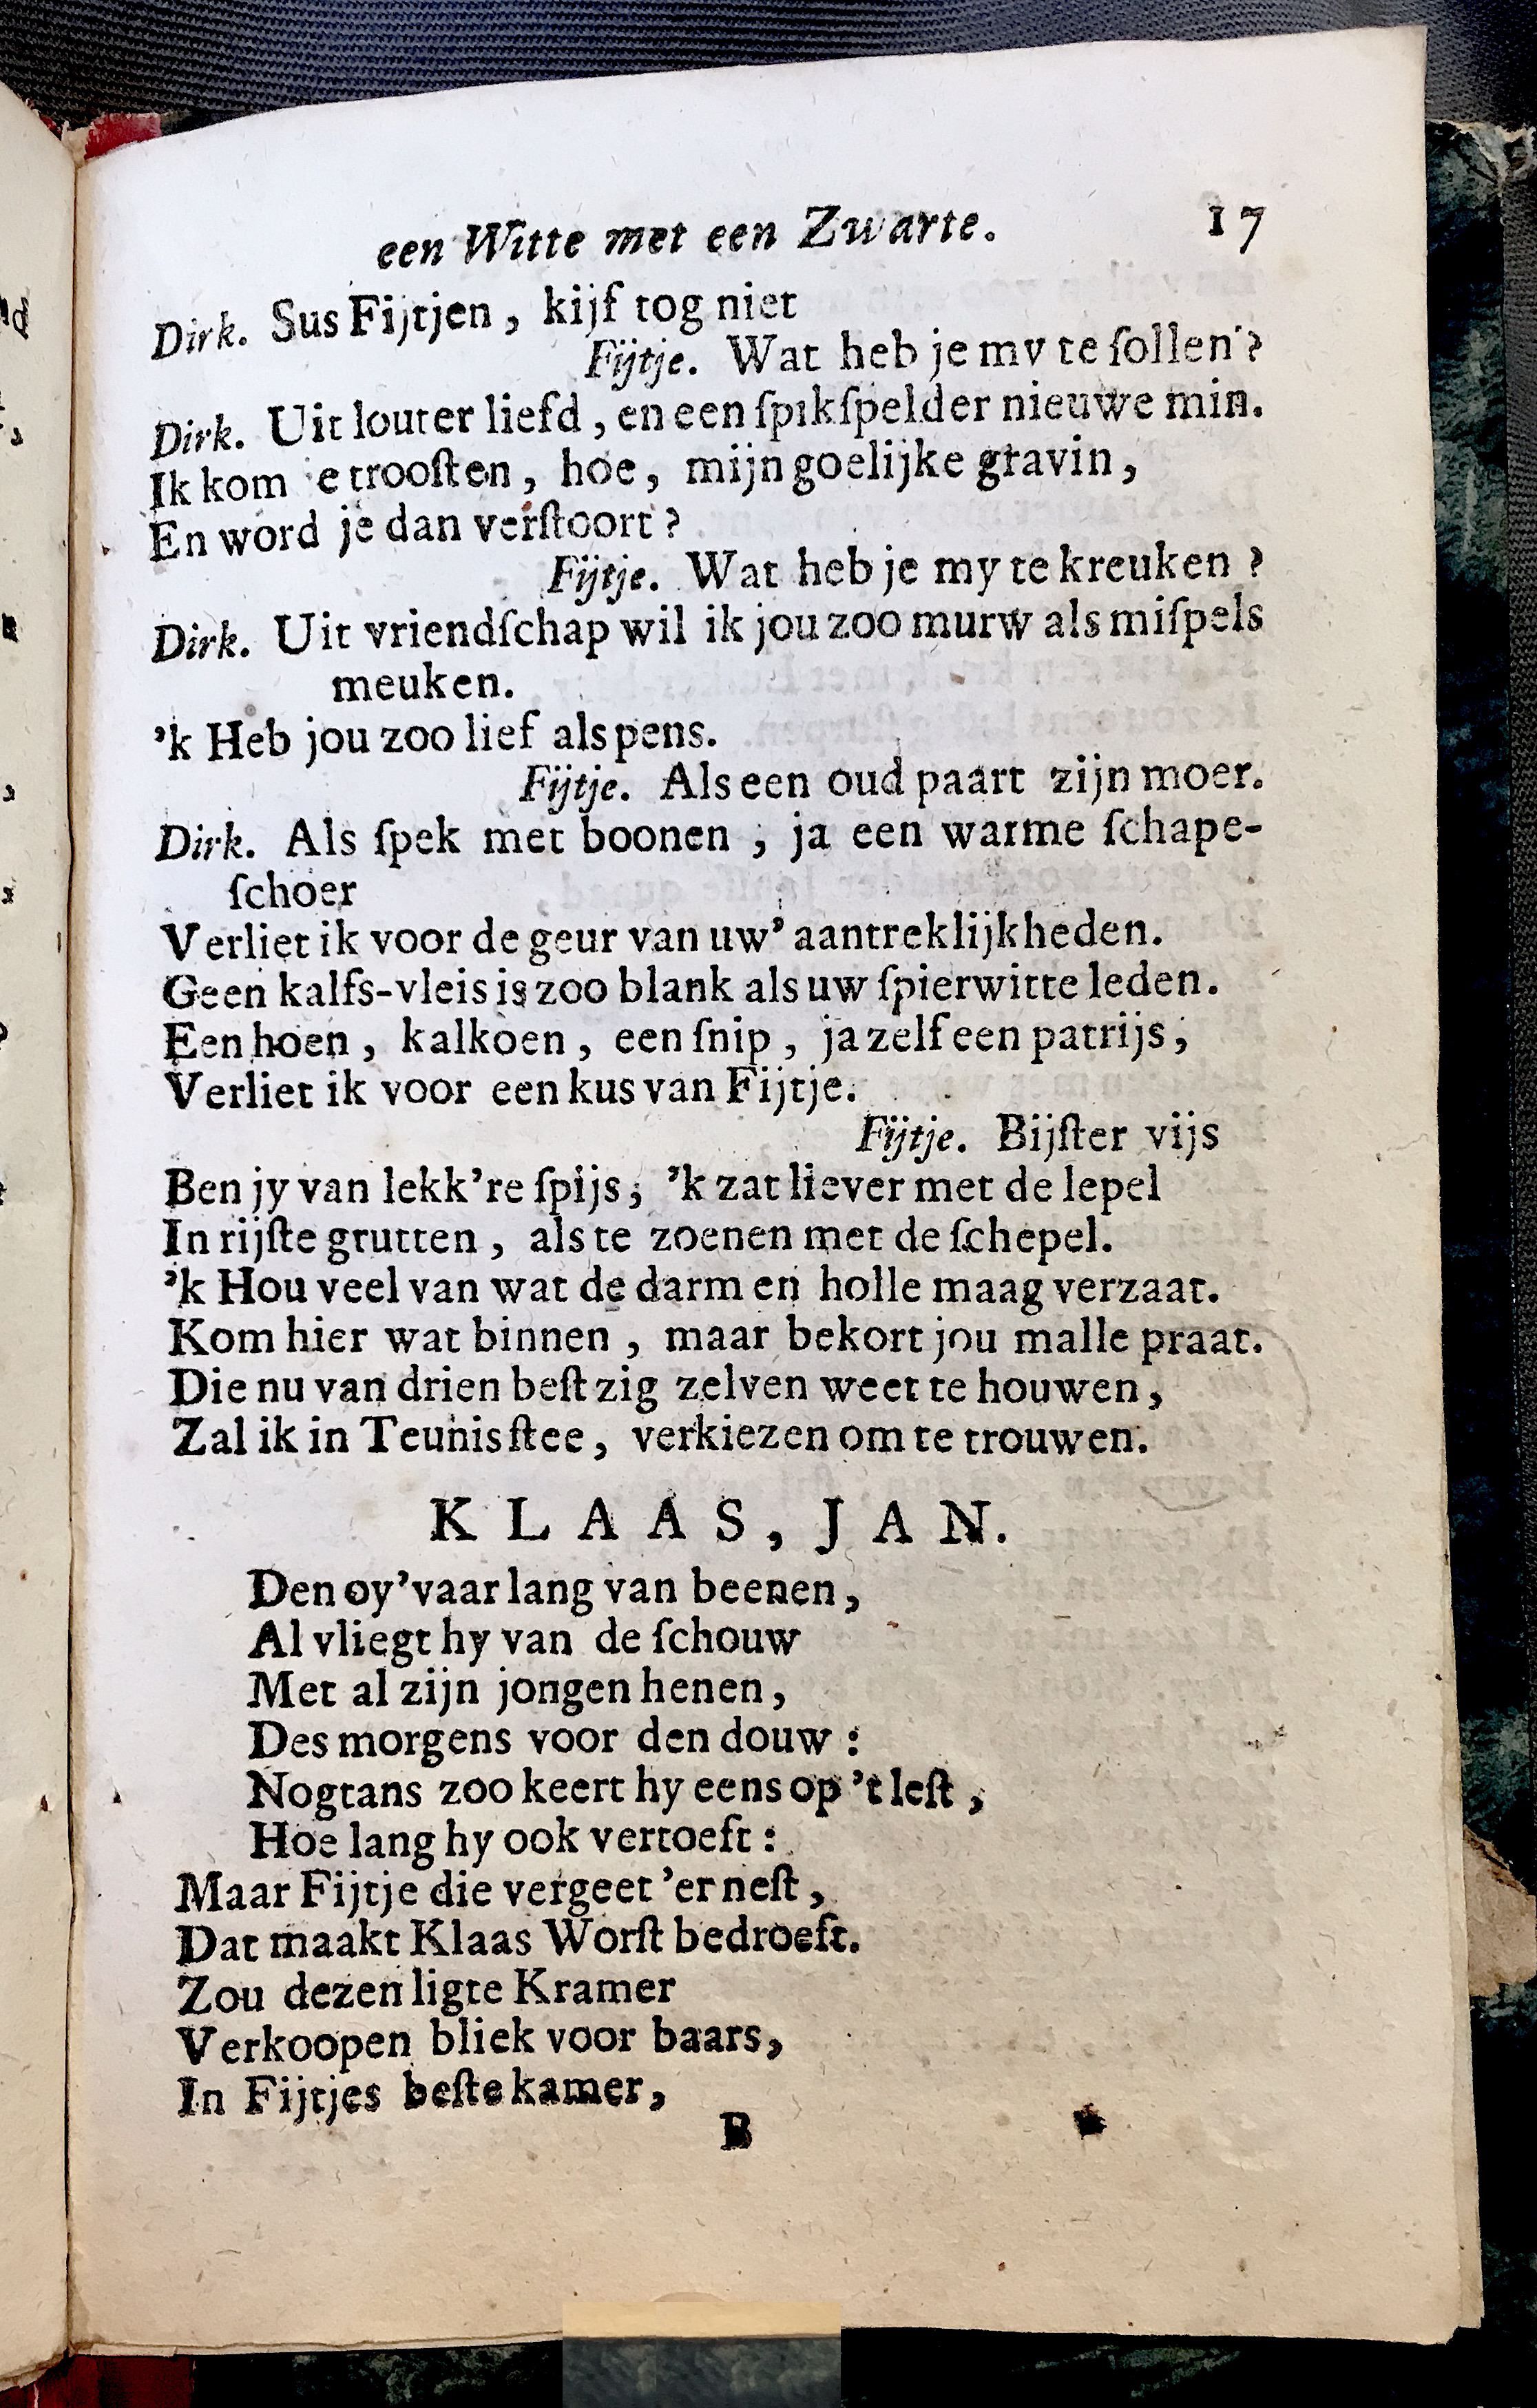 een Witte met een Zwarte. 17
Dirk. Sus Fijtjen, kijf tog niet
Fijtje. Wat heb je my te ſollen?
Dirk. Uit louter liefd, en een ſpikſpelder nieuwe min.
Ik kom e trooſten, hoe, mijn goelijke gravin,
En word je dan verſtoort?
Fijtje. Wat heb je my te kreuken?
Dirk. Uit vriendſchap wil ik jou zoo murw als miſpels
meuken.
'k Heb jou zoo lief als pens.
Fijtje. Als een oud paart zijn moer.
Dirk. Als ſpek met boonen, ja een warme ſchape-
ſchoer
Verliet ik voor de geur van uw' aantreklijkheden.
Geen kalfs-vleis is zoo blank als uw ſpierwitte leden.
Een hoen, kalkoen, een ſnip, ja zelf een patrijs,
Verliet ik voor een kus van Fijtje.
Fijtje. Bijſter vijs
Ben jy van lekk're ſpijs; 'k zat liever met de lepel
In rijſte grutten, als te zoenen met de ſchepel.
'k Hou veel van wat de darm en holle maag verzaat.
Kom hier wat binnen, maar bekort jou malle praat.
Die nu van drien beſt zig zelven weet te houwen,
Zal ik in Teunis ſtee, verkiezen om te trouwen.
KLAAS, JAN.
Den oy'vaar lang van beenen,
Al vliegt hy van de ſchouw
Met al zijn jongen henen,
Des morgens voor den douw:
Nogtans zoo keert hy eens op 't leſt,
Hoe lang hy ook vertoeft:
Maar Fijtje die vergeet 'er neſt,
Dat maakt Klaas Worſt bedroeft.
Zou dezen ligte Kramer
Verkoopen bliek voor baars,
In Fijtjes beſte kamer,
B